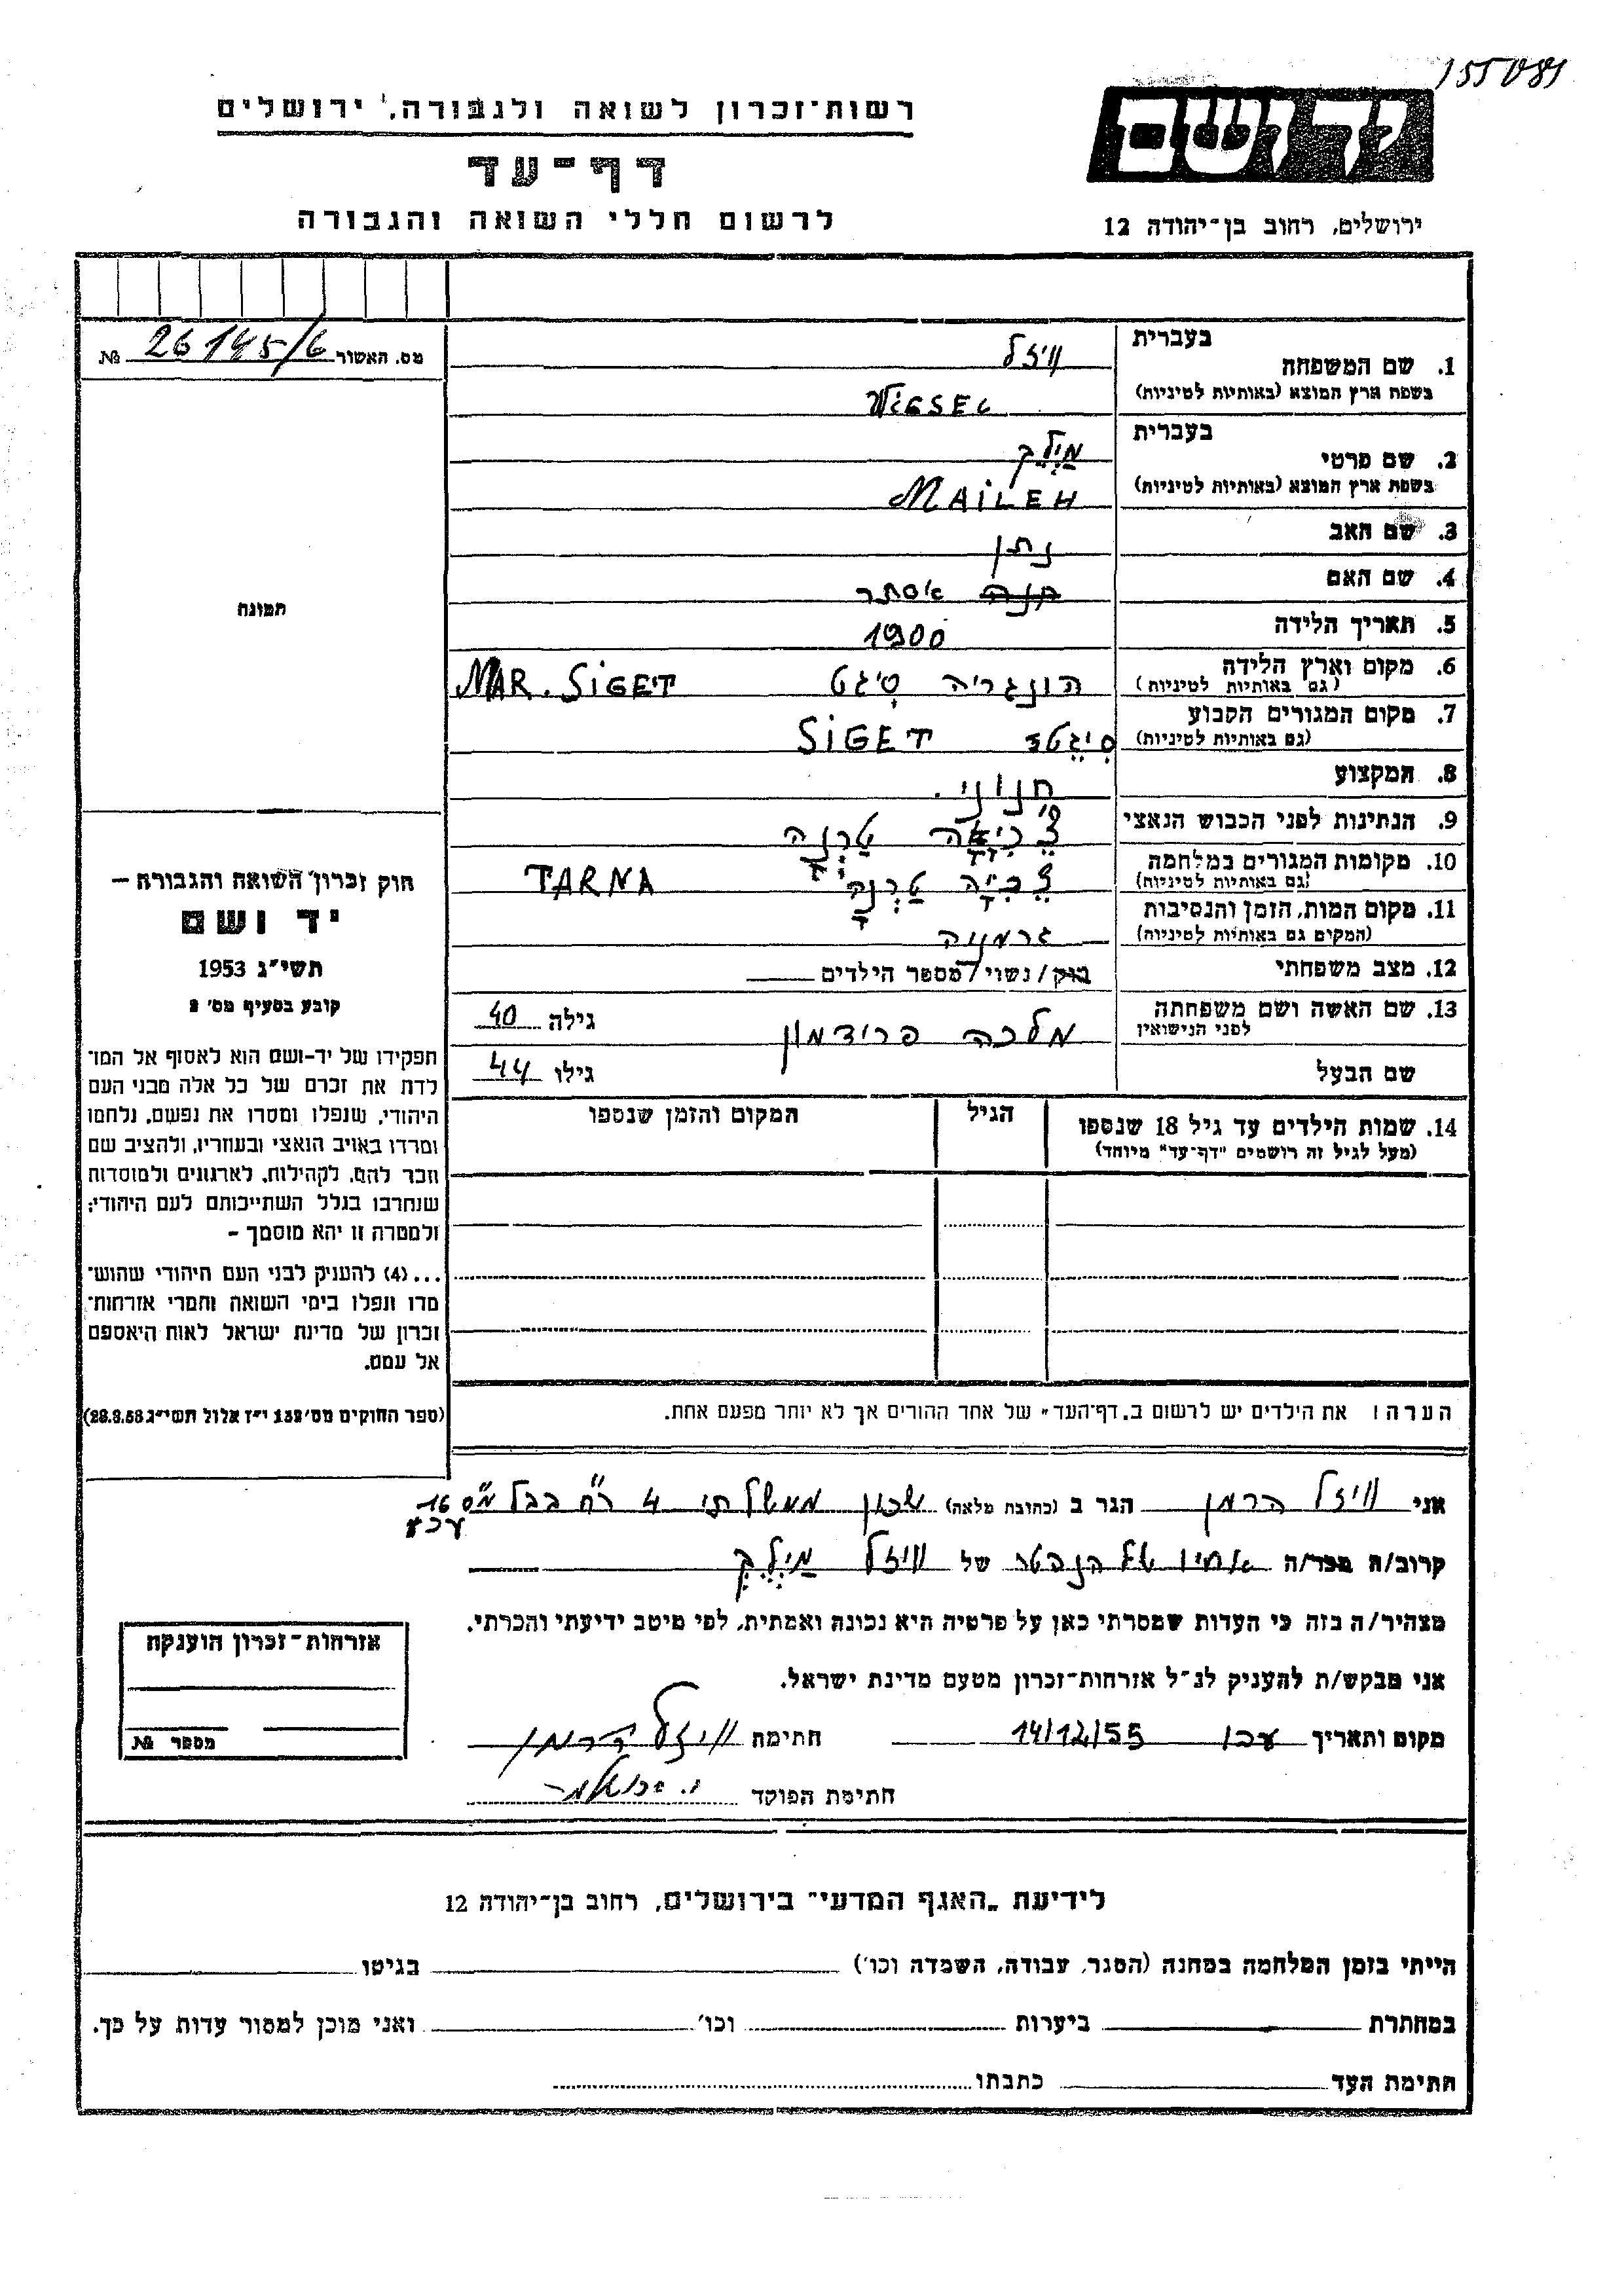 155089
רשות-זכרון לשואה ולגבורה, ירושלים
דף-עד
לרשום חללי השואה והגבורה
יד ושם
ירושלים, רחוב בן-יהודה 12
מס. האשור 26145/6 №
תמונה
חוק זכרון השואה והגבורה –
יד ושם
תשי"ג 1953
קובע בסעיף מס' 2
תפקידו של יד-ושם הוא לאסוף אל המו־
לדת את זכרם של כל אלה מבני העם
היהודי, שנפלו ומסרו את נפשם, נלחמו
ומרדו באויב הנאצי ובעוזריו, ולהציב שם
וזכר להם, לקהילות, לארגונים ולמוסדות
שנחרבו בגלל השתייכותם לעם היהודי;
ולמטרה זו יהא מוסמך –
...(4) להעניק לבני העם היהודי שהוש־
מדו ונפלו בימי השואה והמרי אזרחות־
זכרון של מדינת ישראל לאות היאספם
אל עמם.
(ספר החוקים מס' 132 י"ז אלול תשי"ג 28.8.53)
בעברית
1. שם המשפחה וויזל
בשפת ארץ המוצא (באותיות לטיניות) WIESEL
בעברית
2. שם פרטי מַיְלֶךְ
בשפת ארץ המוצא (באותיות לטיניות) MAiLEH
3. שם האב נתן
4. שם האם חנה אסתר
5. תאריך הלידה 1900
6. מקום וארץ הלידה הונגריה סיגט MAR. SiGET
(גם באותיות לטיניות)
7. מקום המגורים הקבוע סיגט SiGET
(גם באותיות לטיניות)
8. המקצוע חנוני.
9. הנתינות לפני הכבוש הנאצי
10. מקומות המגורים במלחמה TARNA
(גם באותיות לטיניות)
11. מקום המות, הזמן והנסיבות גרמניה
(המקום גם באותיות לטיניות)
12. מצב משפחתי רווק/נשוי/מספר הילדים
13. שם האשה ושם משפחתה מלכה פרידמון גילה 40
לפני הנישואין
שם הבעל גילו 44
14. שמות הילדים עד גיל 18 שנספו הגיל המקום והזמן שנספו
(מעל לגיל זה רושמים "דף-עד" מיוחד)
הערה: את הילדים יש לרשום ב"דף-העד" של אחד ההורים אך לא יותר מפעם אחת.
אני וויזל הרמן הגר ב (כתובת מלאה) שכון ממשלתי 4 רח' בבל מס 16
עכו
קרוב/ה מכר/ה אחיו של הנפטר של וויזל מַיְלֶךְ
מצהיר/ה בזה כי העדות שמסרתי כאן על פרטיה היא נכונה ואמתית, לפי מיטב ידיעתי והכרתי.
אני מבקש/ת להעניק לנ"ל אזרחות-זכרון מטעם מדינת ישראל.
מקום ותאריך עכו 14/12/55 חתימה וויזל הרמן
חתימת הפוקד
אזרחות-זכרון הוענקה
מספר №
לידיעת "האגף המדעי" בירושלים, רחוב בן-יהודה 12
הייתי בזמן המלחמה במחנה (הסגר, עבודה, השמדה וכו') בגיטו
במחתרת ביערות וכו' ואני מוכן למסור עדות על כך.
חתימת העד כתבתו